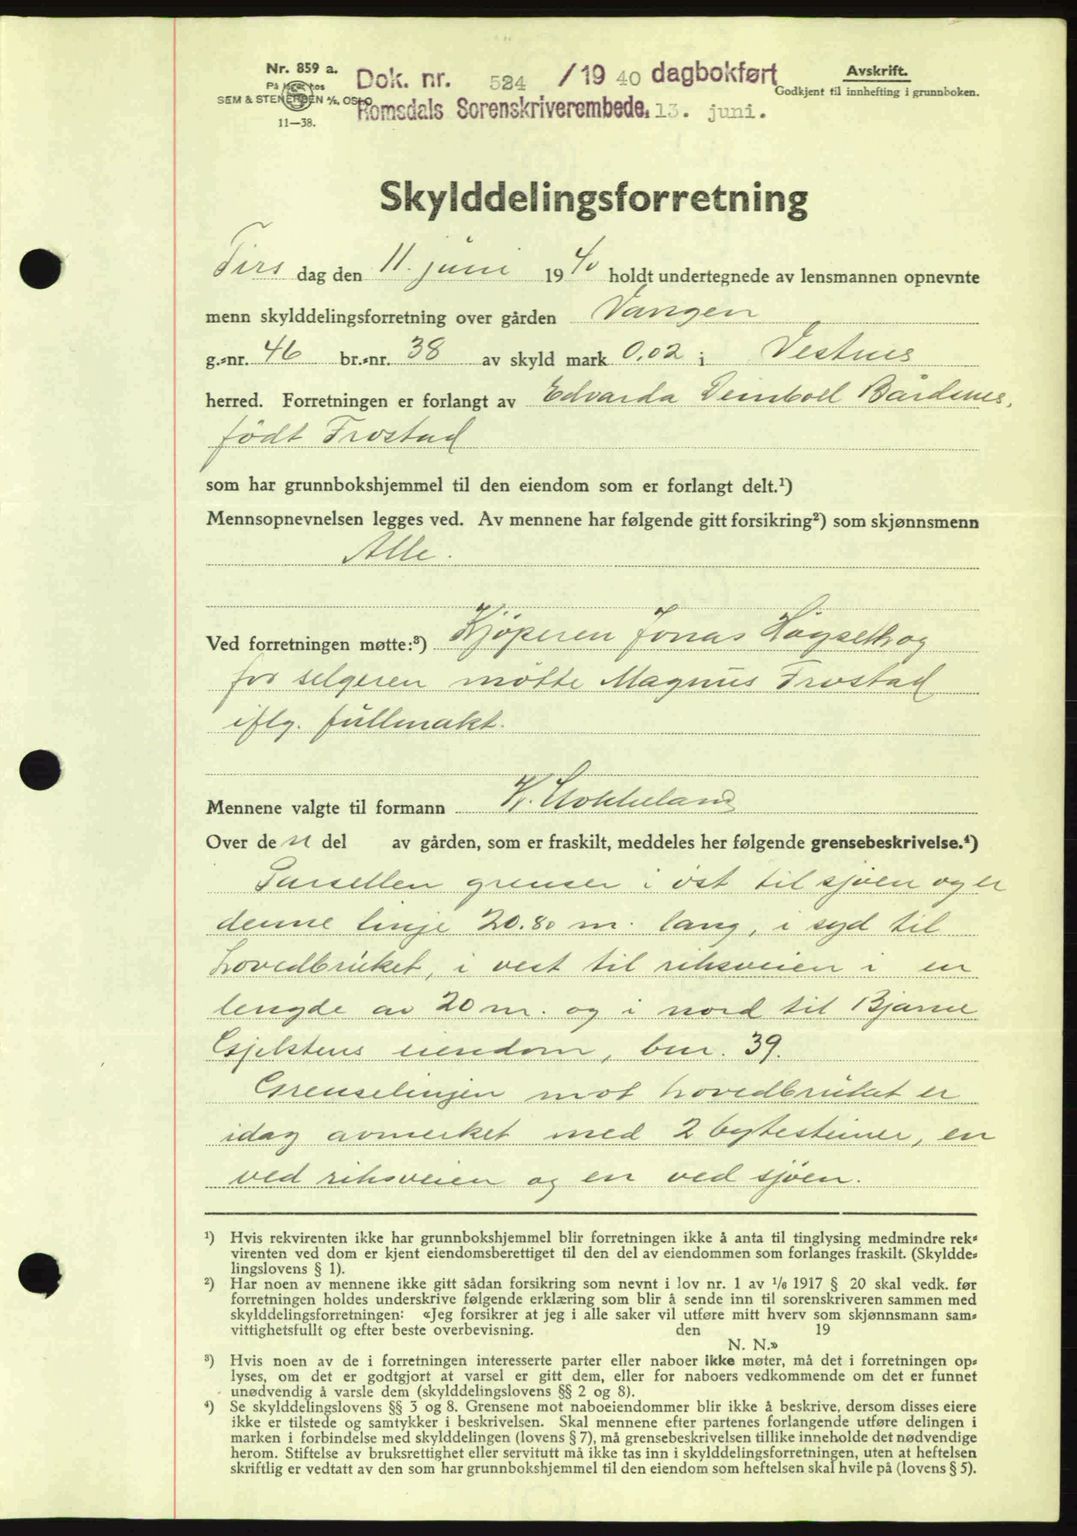 Nr. 859 a.
SEM & STENERSEN A/S, OSLO
11—38.
Dok. nr. 524 /19 40 dagbokført
Romsdals Sorenskriverembede, 13. juni.
Avskrift.
Godkjent til innhefting i grunnboken.
Skylddelingsforretning
Tirs dag den 11. juni 19 40 holdt undertegnede av lensmannen opnevnte
menn skylddelingsforretning over gården Vangen
g.-nr. 46 br.-nr. 38 av skyld mark 0,02 i Vestnes
herred. Forretningen er forlangt av Edvarda Deinboll Bårdsnes,
født Frostad
som har grunnbokshjemmel til den eiendom som er forlangt delt.¹)
Mennsopnevnelsen legges ved. Av mennene har følgende gitt forsikring²) som skjønnsmenn
Alle.
Ved forretningen møtte:³) Kjøperen Jonas Høgseth og
for selgeren møtte Magnus Frostad
iflg. fullmakt.
Mennene valgte til formann K. Stokkeland
Over de n del av gården, som er fraskilt, meddeles her følgende grensebeskrivelse.⁴)
Parsellen grenser i øst til sjøen og er
denne linje 20.80 m. lang, i syd til
hovedbruket, i vest til riksveien i en
lengde av 20 m. og i nord til Bjarne
Gjelstens eiendom, bnr. 39.
Grenselinjen mot hovedbruket er
idag avmerket med 2 bytesteiner, en
ved riksveien og en ved sjøen.
¹) Hvis rekvirenten ikke har grunnbokshjemmel blir forretningen ikke å anta til tinglysing medmindre rek-
virenten ved dom er kjent eiendomsberettiget til den del av eiendommen som forlanges fraskilt. (Skyldde-
lingslovens § 1).
²) Har noen av mennene ikke gitt sådan forsikring som nevnt i lov nr. 1 av 1/6 1917 § 20 skal vedk. før
forretningen holdes underskrive følgende erklæring som blir å sende inn til sorenskriveren sammen med
skylddelingsforretningen: «Jeg forsikrer at jeg i alle saker vil utføre mitt hverv som skjønnsmann sam-
vittighetsfullt og efter beste overbevisning. den 19
N. N.»
³) Hvis noen av de i forretningen interesserte parter eller naboer ikke møter, må det i forretningen op-
lyses, om det er godtgjort at varsel er gitt dem, eller for naboers vedkommende om det er funnet
unødvendig å varsle dem (skylddelingslovens §§ 2 og 8).
⁴) Se skylddelingslovens §§ 3 og 8. Grensene mot naboeiendommer blir ikke å beskrive, dersom disses eiere
ikke er tilstede og samtykker i beskrivelsen. Skal mennene efter partenes forlangende utføre delingen i
marken i forbindelse med skylddelingen (lovens § 7), må grensebeskrivelsen tillike inneholde det nødvendige
herom. Stiftelse av bruksrettighet eller servitutt må ikke tas inn i skylddelingsforretningen, uten at heftelsen
skriftlig er vedtatt av den som har grunnbokshjemmel til den eiendom som heftelsen skal hvile på (lovens § 5).